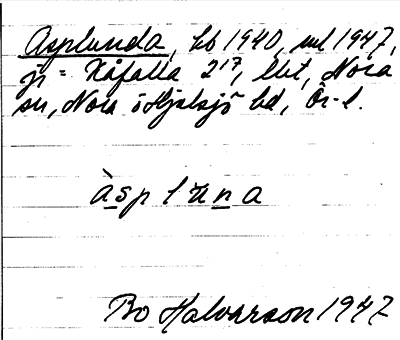 Asplunda, bb 1940, ul 1947,
jr = Håfalla 2¹⁷, lht, Nora
sn, Nora o Hjulsjö bd, Ör-l.
àsplu̇na
Bo Halvarson 1947